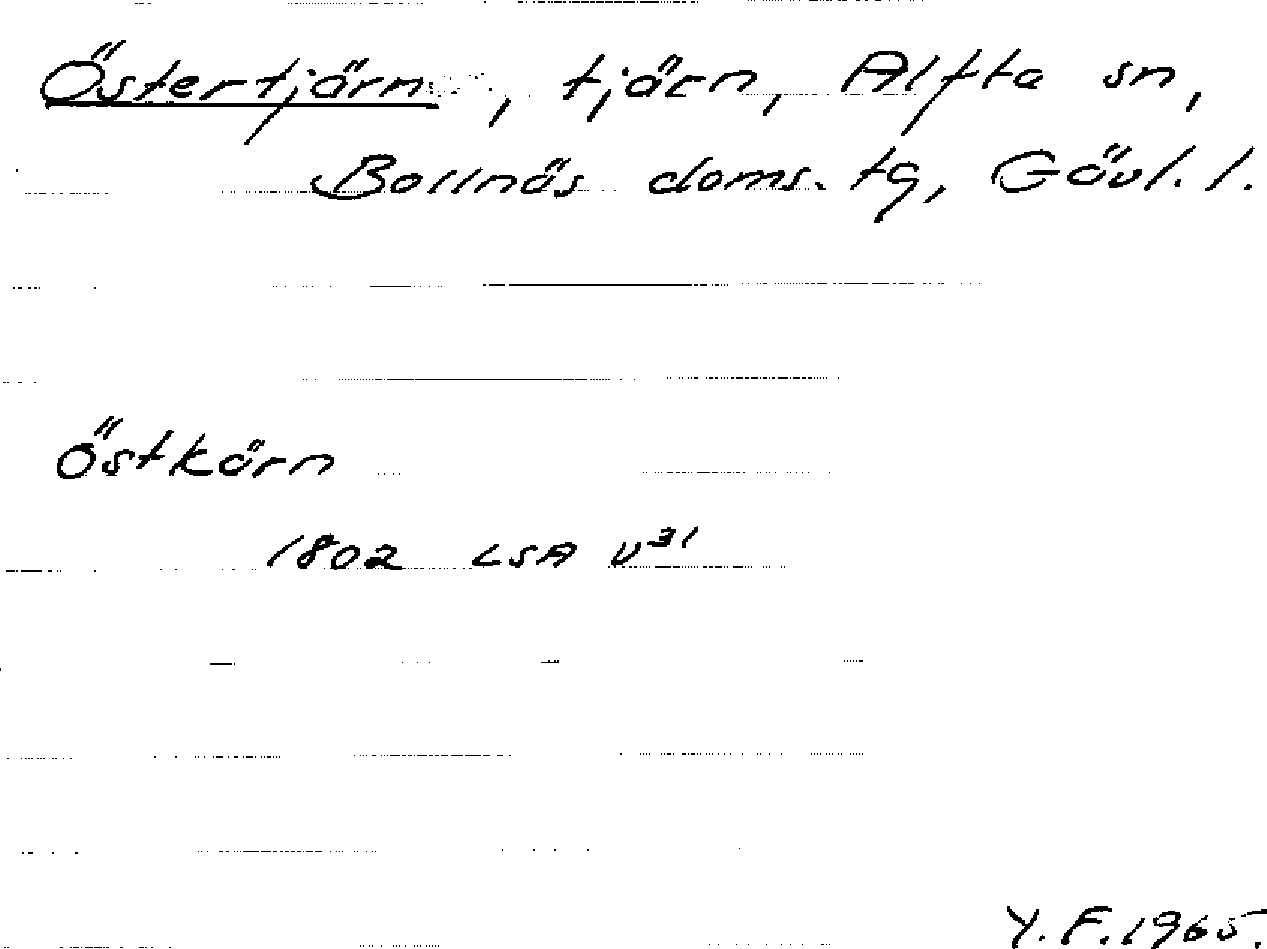 Östertjärn, tjärn, Alfta sn,
Bollnäs doms. tg, Gävl. l.
Östkärn
1802 LSA U³¹
Y. F. 1965.